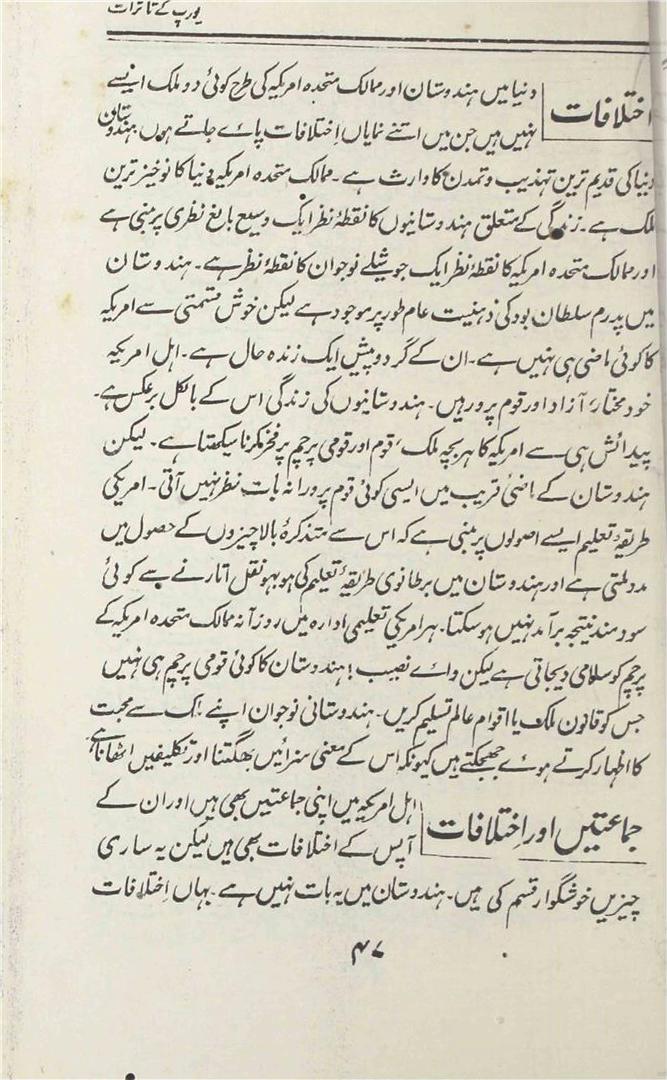 یورپ کے تاثرات
اختلافات
دنیا میں ہندوستان اور ممالک متحدہ امریکہ کی طرح کوئی دو ملک ایسے
نہیں ہیں جن میں اتنے نمایاں اِختلافات پائے جاتے ہوں۔ ہندوستان
دنیا کی قدیم ترین تہذیب و تمدن کا وارث ہے۔ ممالک متحدہ امریکہ دنیا کا نوخیز ترین
ملک ہے۔ زندگی کے متعلق ہندوستانیوں کا نقطۂ نظر ایک وسیع بالغ نظری پر مبنی ہے
اور ممالک متحدہ امریکہ کا نقطۂ نظر ایک جوشیلے نوجوان کا نقطۂ نظر ہے۔ ہندوستان
میں پدرم سلطان بود کی ذہنیت عام طور پر موجود ہے لیکن خوش قسمتی سے امریکہ
کا کوئی ماضی ہی نہیں ہے۔ ان کے گرد و پیش ایک زندہ حال ہے۔ اہل امریکہ
خود مختار، آزاد اور قوم پرور ہیں۔ ہندوستانیوں کی زندگی اس کے بالکل برعکس ہے۔
پیدائش ہی سے امریکہ کا ہر بچہ ملک، قوم اور قومی پرچم پر فخر کرنا سیکھتا ہے۔ لیکن
ہندوستان کے ماضیٔ قریب میں ایسی کوئی قوم پرورانہ بات نظر نہیں آتی۔ امریکی
طریقۂ تعلیم ایسے اصولوں پر مبنی ہے کہ اس سے متذکرۂ بالا چیزوں کے حصول میں
مدد ملتی ہے اور ہندوستان میں برطانوی طریقۂ تعلیم کی ہوبہو نقل اتارنے سے کوئی
سود مند نتیجہ برآمد نہیں ہو سکتا۔ ہر امریکی تعلیمی ادارہ میں روزآنہ ممالک متحدہ امریکہ کے
پرچم کو سلامی دیجاتی ہے لیکن وائے نصیب! ہندوستان کا کوئی قومی پرچم ہی نہیں
جس کو قانون ملک یا اقوام عالم تسلیم کریں۔ ہندوستانی نوجوان اپنے ملک سے محبت
کا اظہار کرتے ہوئے جھجکتے ہیں کیونکہ اس کے معنی سزائیں بھگتنا اور تکلیفیں اٹھانا ہے۔
جماعتیں اور اِختلافات
اہل امریکہ میں اپنی جماعتیں بھی ہیں اور ان کے
آپس کے اختلافات بھی ہیں لیکن یہ ساری
چیزیں خوشگوار قسم کی ہیں۔ ہندوستان میں یہ بات نہیں ہے۔ یہاں اِختلافات
۴۷